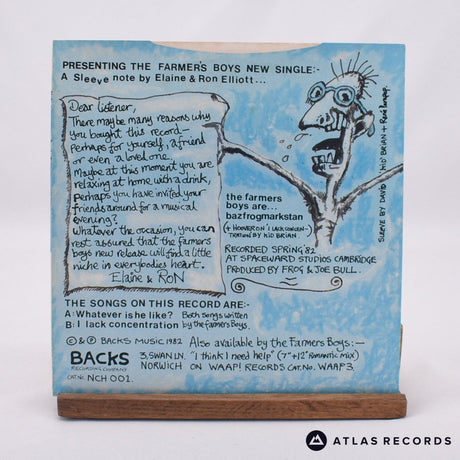 PRESENTING THE FARMER'S BOYS NEW SINGLE:-
A Sleeve note by Elaine & Ron Elliott...
Dear listener,
There may be many reasons why
you bought this record-
perhaps for yourself, a friend
or even a loved one.
Maybe at this moment you are
relaxing at home with a drink,
Perhaps you have invited your
friends around for a musical
evening?
Whatever the occasion, you can
rest assured that the farmers
boys new release will find a little
niche in everybodies heart.
Elaine & RON
SLEEVE BY DAVID 'KID' BRIAN +
the farmers
boys are...
bazfrogmarkstan
(+ HOOVER ON 'I LACK CONCEN-
TRATION BY KID BRIAN.
RECORDED SPRING '82
AT SPACEWARD STUDIOS CAMBRIDGE
PRODUCED BY FROG & JOE BULL.
THE SONGS ON THIS RECORD ARE:-
A: Whatever is he like? Both Songs written
B: I lack concentration by the farmers Boys.
© & ℗ BACKS MUSIC 1982
BACKS
RECORDING COMPANY
3, SWAN LN.
NORWICH
CAT. No. NCH 001.
Also available by the Farmers Boys:-
"I think I need help" (7"+12" ROMANTIC MIX)
ON WAAP! RECORDS CAT. No. WAAP3.
ATLAS RECORDS